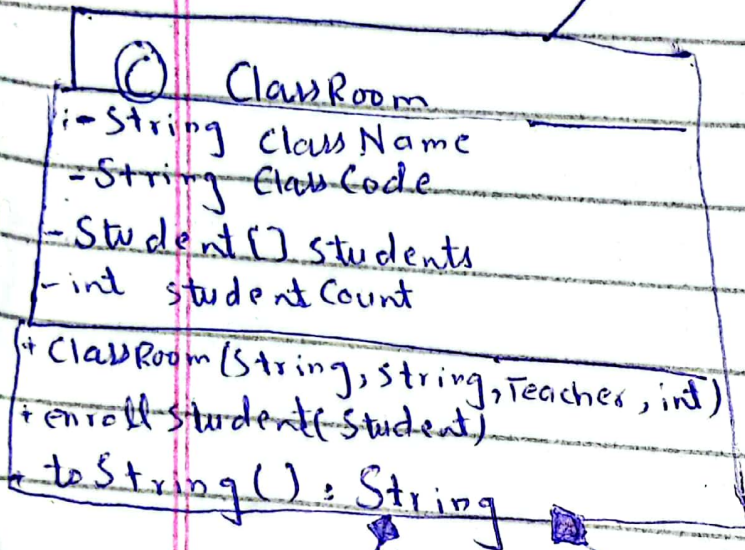 C ClassRoom
- String ClassName
- String ClassCode
- Student[] students
- int studentCount
+ ClassRoom(String, String, Teacher, int)
+ enrollStudent(Student)
+ toString() : String